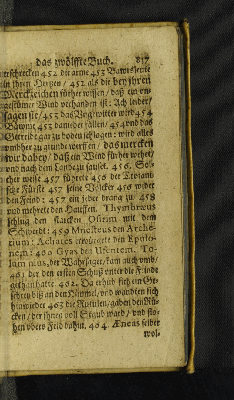 das zwölffte Buch. 817
erschrecken 452 die arme 453 Bawrsleute
in ihren Hertzen / 452 als die bey ihren
Merckzeichen vorher wissen / daß ein un-
gestümer Wind vorhanden ist: Ach leider /
sagen sie / 453 das Ungewitter wird 454
Bäwme 453 darnieder fällen / 454 und das
Getreide gar zu boden schlagen: wird alles
zu grunde werffen / das mercken
wir dabey / daß ein Wind fürher wehet /
und nach dem Lande zu sauset. 456. Sol-
cher weise 457 führete 456 der Troiani-
sche Fürst 457 seine Völcker 456 wider
den Feind: 457 ein jeder drang zu 458
und mehrete den Hauffen. Thymbræus
schlug den starcken Osirim mit dem
Schwerdt: 459 Mnesteus den Arche-
tium: Achates erwürgete den Epulo-
nem: 460 Gyas den Ufentem. To-
lumnius, der Wahrsager / kam auch umb /
461 der den ersten Schuß unter die Feinde
gethan hatte 462. Da erhub sich ein Ge-
schrey biß an den Himmel / und wandten sich
hinwieder 463 die Rutulen / gaben den Rü-
cken / der ihnen voll Staub ward / und flo-
hen übers Feld dahin. 464. Æneas selber
wol-